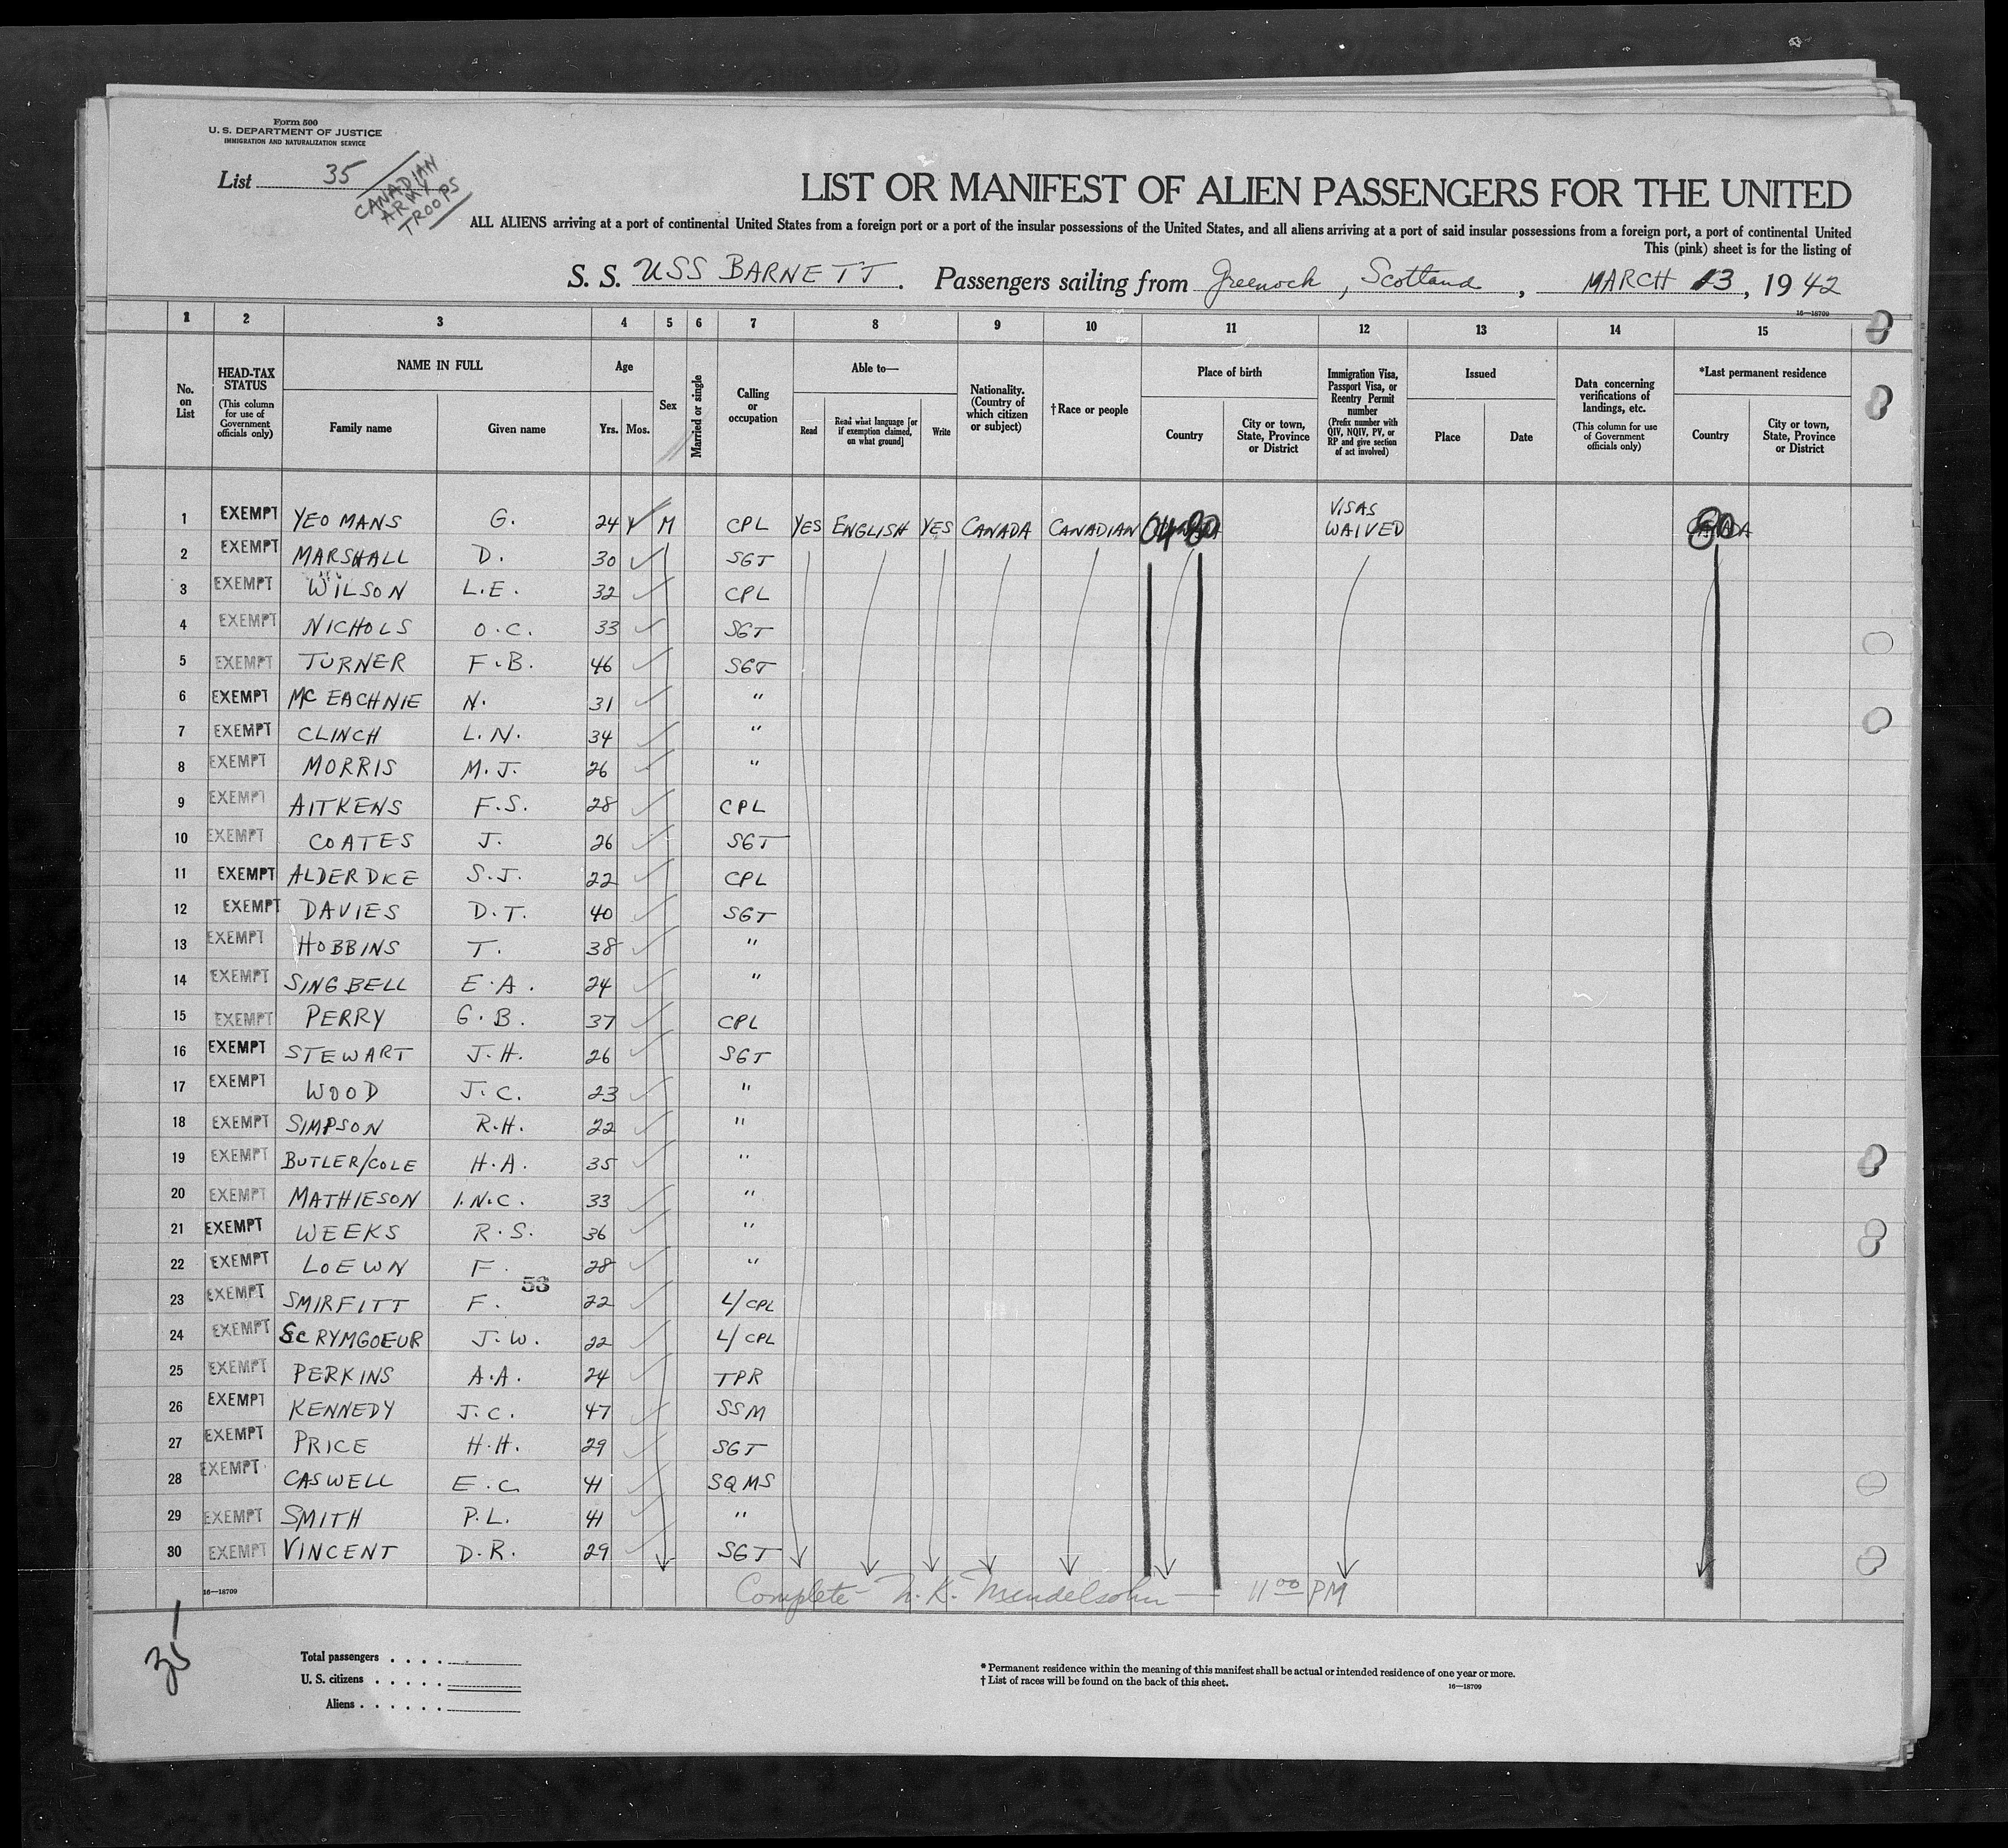 Form 500
U. S. DEPARTMENT OF JUSTICE
IMMIGRATION AND NATURALIZATION SERVICE
List 35
CANADIAN
ARMY
TROOPS
LIST OR MANIFEST OF ALIEN PASSENGERS FOR THE UNITED
ALL ALIENS arriving at a port of continental United States from a foreign port or a port of the insular possessions of the United States, and all aliens arriving at a port of said insular possessions from a foreign port, a port of continental United
This (pink) sheet is for the listing of
S. S. USS BARNETT. Passengers sailing from Greenock, Scotland, MARCH 13, 1942
16—18709
1 2 3 4 5 6 7 8 9 10 11 12 13 14 15
No. on List
HEAD-TAX STATUS (This column for use of Government officials only)
NAME IN FULL
Family name
Given name
Age
Yrs. Mos.
Sex
Married or single
Calling or occupation
Able to—
Read
Read what language [or if exemption claimed, on what ground]
Write
Nationality. (Country of which citizen or subject)
†Race or people
Place of birth
Country
City or town, State, Province or District
Immigration Visa, Passport Visa, or Reentry Permit number (Prefix number with QIV, NQIV, PV, or RP and give section of act involved)
Issued
Place
Date
Data concerning verifications of landings, etc. (This column for use of Government officials only)
*Last permanent residence
Country
City or town, State, Province or District
1 EXEMPT YEOMANS G. 24 M CPL YES ENGLISH YES CANADA CANADIAN VISAS WAIVED CANADA
2 EXEMPT MARSHALL D. 30 SGT
3 EXEMPT WILSON L.E. 32 CPL
4 EXEMPT NICHOLS O.C. 33 SGT
5 EXEMPT TURNER F.B. 46 SGT
6 EXEMPT McEACHNIE N. 31 "
7 EXEMPT CLINCH L.N. 34 "
8 EXEMPT MORRIS M.J. 26 "
9 EXEMPT AITKENS F.S. 28 CPL
10 EXEMPT COATES J. 26 SGT
11 EXEMPT ALDERDICE S.J. 22 CPL
12 EXEMPT DAVIES D.T. 40 SGT
13 EXEMPT HOBBINS T. 38 "
14 EXEMPT SINGBELL E.A. 24 "
15 EXEMPT PERRY G.B. 37 CPL
16 EXEMPT STEWART J.H. 26 SGT
17 EXEMPT WOOD J.C. 23 "
18 EXEMPT SIMPSON R.H. 22 "
19 EXEMPT BUTLER/COLE H.A. 35 "
20 EXEMPT MATHIESON I.N.C. 33 "
21 EXEMPT WEEKS R.S. 36 "
22 EXEMPT LOEWN F. 28 "
53
23 EXEMPT SMIRFITT F. 22 L/CPL
24 EXEMPT SCRYMGOEUR J.W. 22 L/CPL
25 EXEMPT PERKINS A.A. 24 TPR
26 EXEMPT KENNEDY J.C. 47 SSM
27 EXEMPT PRICE H.H. 29 SGT
28 EXEMPT CASWELL E.C. 41 SQMS
29 EXEMPT SMITH P.L. 41 "
30 EXEMPT VINCENT D.R. 29 SGT
16—18709
Complete — N. K. Mendelsohn — 11 00 PM
35
Total passengers
U. S. citizens
Aliens
* Permanent residence within the meaning of this manifest shall be actual or intended residence of one year or more.
† List of races will be found on the back of this sheet.
16—18709